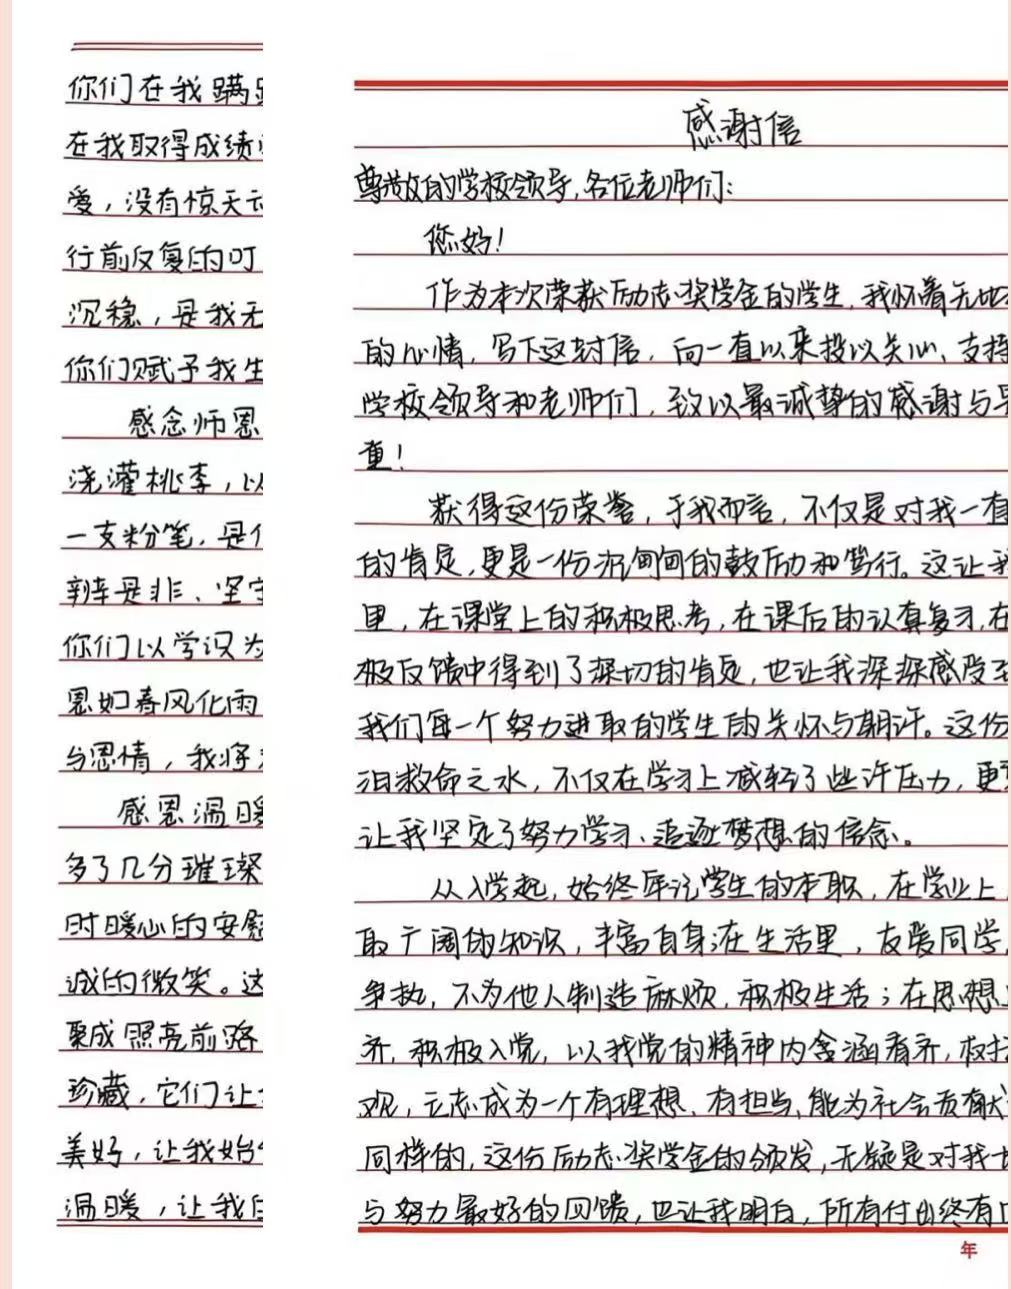 你们在我蹒
在我取得成绩
爱，没有惊天
行前反复的叮
沉稳，是我无
你们赋予我生
感念师恩
浇灌桃李，以
一支粉笔，是
辨是非、坚定
你们以学识为
恩如春风化雨
与恩情，我将
感恩温暖
多了几分璀璨
时暖心的安慰
诚的微笑。这
聚成照亮前路
珍藏，它们让
美好，让我始
温暖，让我
感谢信
尊敬的学校领导，各位老师们：
您好！
作为本次荣获励志奖学金的学生，我怀着无比
的心情，写下这封信，向一直以来投以关心、支持
学校领导和老师们，致以最诚挚的感谢与
重！
获得这份荣誉，于我而言，不仅是对我一直
的肯定，更是一份沉甸甸的鼓励和笃行。这让我
里，在课堂上的积极思考，在课后的认真复习，在
极反馈中得到了深切的肯定，也让我深深感受
我们每一个努力进取的学生的关怀与期许。这份
汩救命之水，不仅在学习上减轻了些许压力，更
让我坚定了努力学习、追逐梦想的信念。
从入学起，始终牢记学生的本职，在学业上
取广阔的知识，丰富自身；在生活里，友爱同学
争执，不为他人制造麻烦，积极生活；在思想
齐，积极入党，以我党的精神内含涵看齐，树
观，立志成为一个有理想、有担当、能为社会贡献
同样的，这份励志奖学金的颁发，无疑是对我
与努力最好的回馈，也让我明白，所有付出终有
年